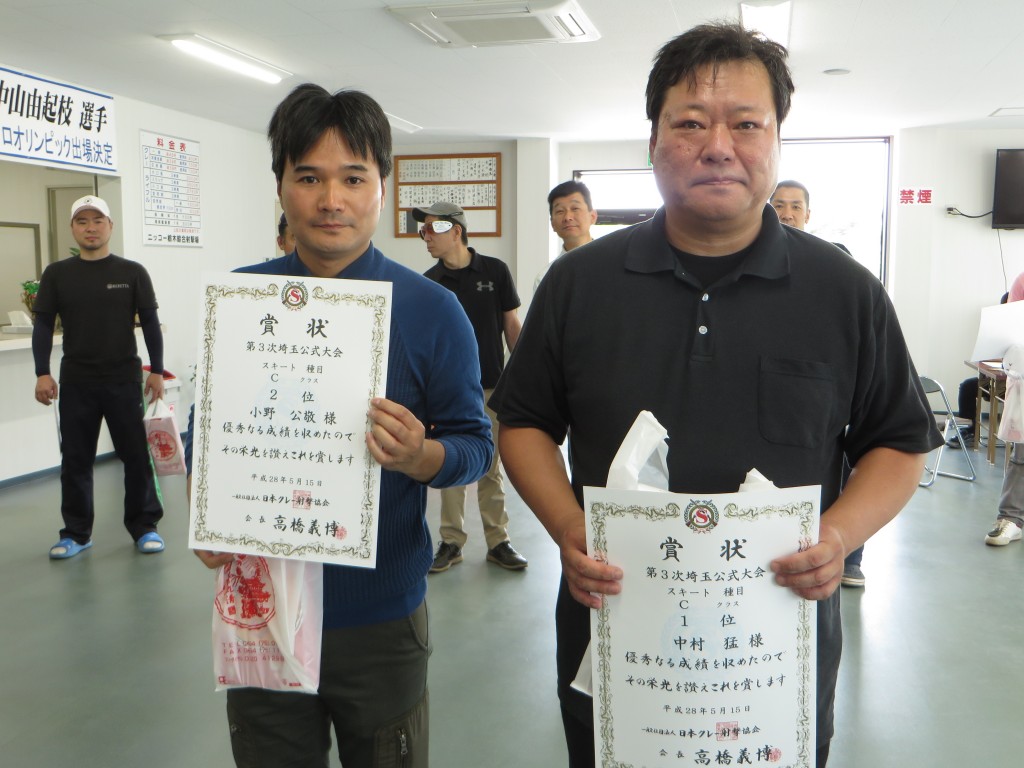 中山由起枝 選手
ロオリンピック出場決定
料金表
ニッコー栃木綜合射撃場
禁煙
S
賞状
第3次埼玉公式大会
スキート 種目
C クラス
2 位
小野 公敬 様
優秀なる成績を収めたので
その栄光を讃えこれを賞します
平成28年5月15日
一般社団法人 日本クレー射撃協会
会長 高橋義博
S
賞状
第3次埼玉公式大会
スキート 種目
C クラス
1 位
中村 猛 様
優秀なる成績を収めたので
その栄光を讃えこれを賞します
平成28年5月15日
一般社団法人 日本クレー射撃協会
会長 高橋義博